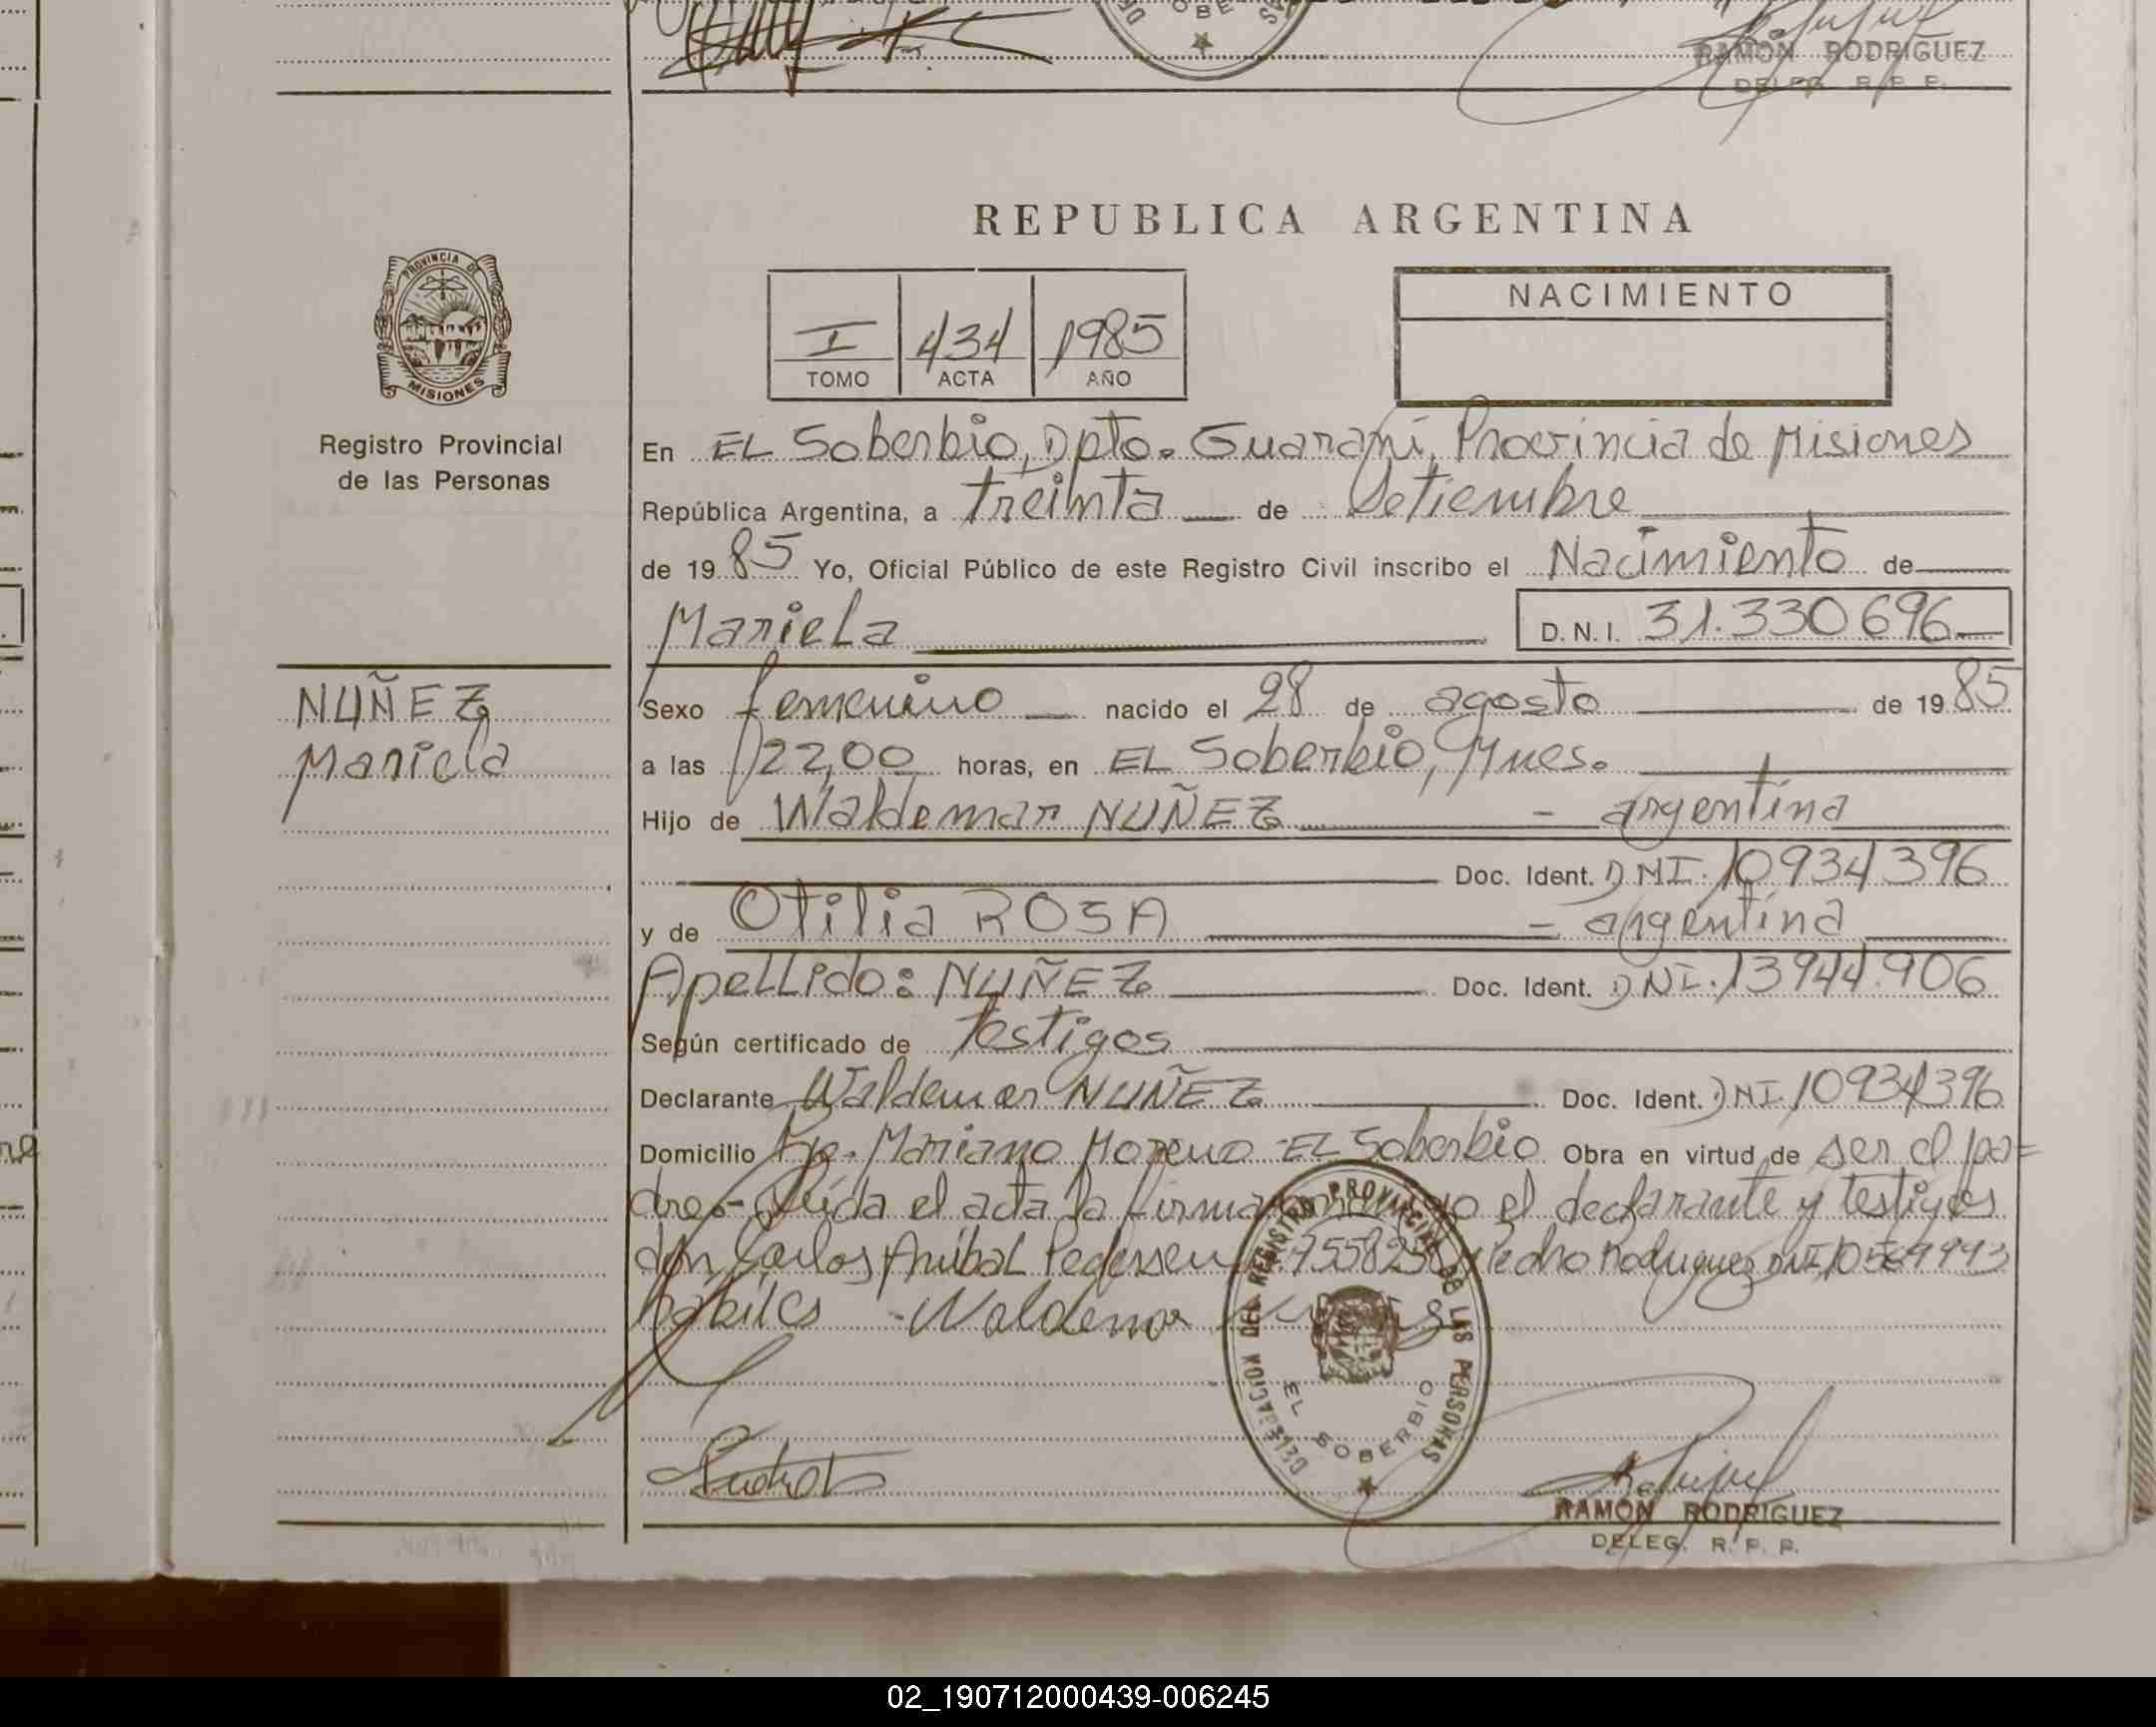 RAMON RODRIGUEZ
DELEG. R. P. P.
REPUBLICA ARGENTINA
PROVINCIA DE
MISIONES
Registro Provincial
de las Personas
I 434 1985
TOMO ACTA AÑO
NACIMIENTO
En EL Soberbio, Dpto. Guaraní, Provincia de Misiones
República Argentina, a treinta de Setiembre
de 19 85 Yo, Oficial Público de este Registro Civil inscribo el Nacimiento de
Mariela D.N.I. 31.330696
NUÑEZ
Mariela
Sexo femenino nacido el 28 de agosto de 19 85
a las 22,00 horas, en EL Soberbio, Mnes.
Hijo de Waldemar NUÑEZ - argentina
Doc. Ident. DNI. 10934396
y de Otilia ROSA - argentina
Apellido: NUÑEZ Doc. Ident. DNI. 13944.906
Según certificado de Testigos
Declarante Waldemar NUÑEZ Doc. Ident. DNI. 10934396
Domicilio Mariano Moreno EL Soberbio Obra en virtud de ser el pa=
dre.- Leída el acta la firma el declarante y testigos
don Carlos Anibal Pedersen y Pedro Rodriguez DNI
habiles - Waldemar
DELEGACION DEL REGISTRO PROVINCIAL DE LAS PERSONAS
EL SOBERBIO
RAMON RODRIGUEZ
DELEG. R. P. P.
02_190712000439-006245